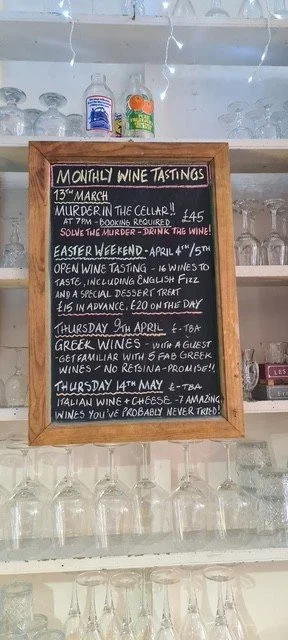 MONTHLY WINE TASTINGS
13TH MARCH
MURDER IN THE CELLAR!! £45
AT 7PM - BOOKING REQUIRED
SOLVE THE MURDER - DRINK THE WINE!
EASTER WEEKEND - APRIL 4TH/5TH
OPEN WINE TASTING - 16 WINES TO
TASTE, INCLUDING ENGLISH FIZZ
AND A SPECIAL DESSERT TREAT
£15 IN ADVANCE, £20 ON THE DAY
THURSDAY 9TH APRIL £-TBA
GREEK WINES - WITH A GUEST
-GET FAMILIAR WITH 5 FAB GREEK
WINES - NO RETSINA-PROMISE!!
THURSDAY 14TH MAY £-TBA
ITALIAN WINE + CHEESE - 7 AMAZING
WINES YOU'VE PROBABLY NEVER TRIED!